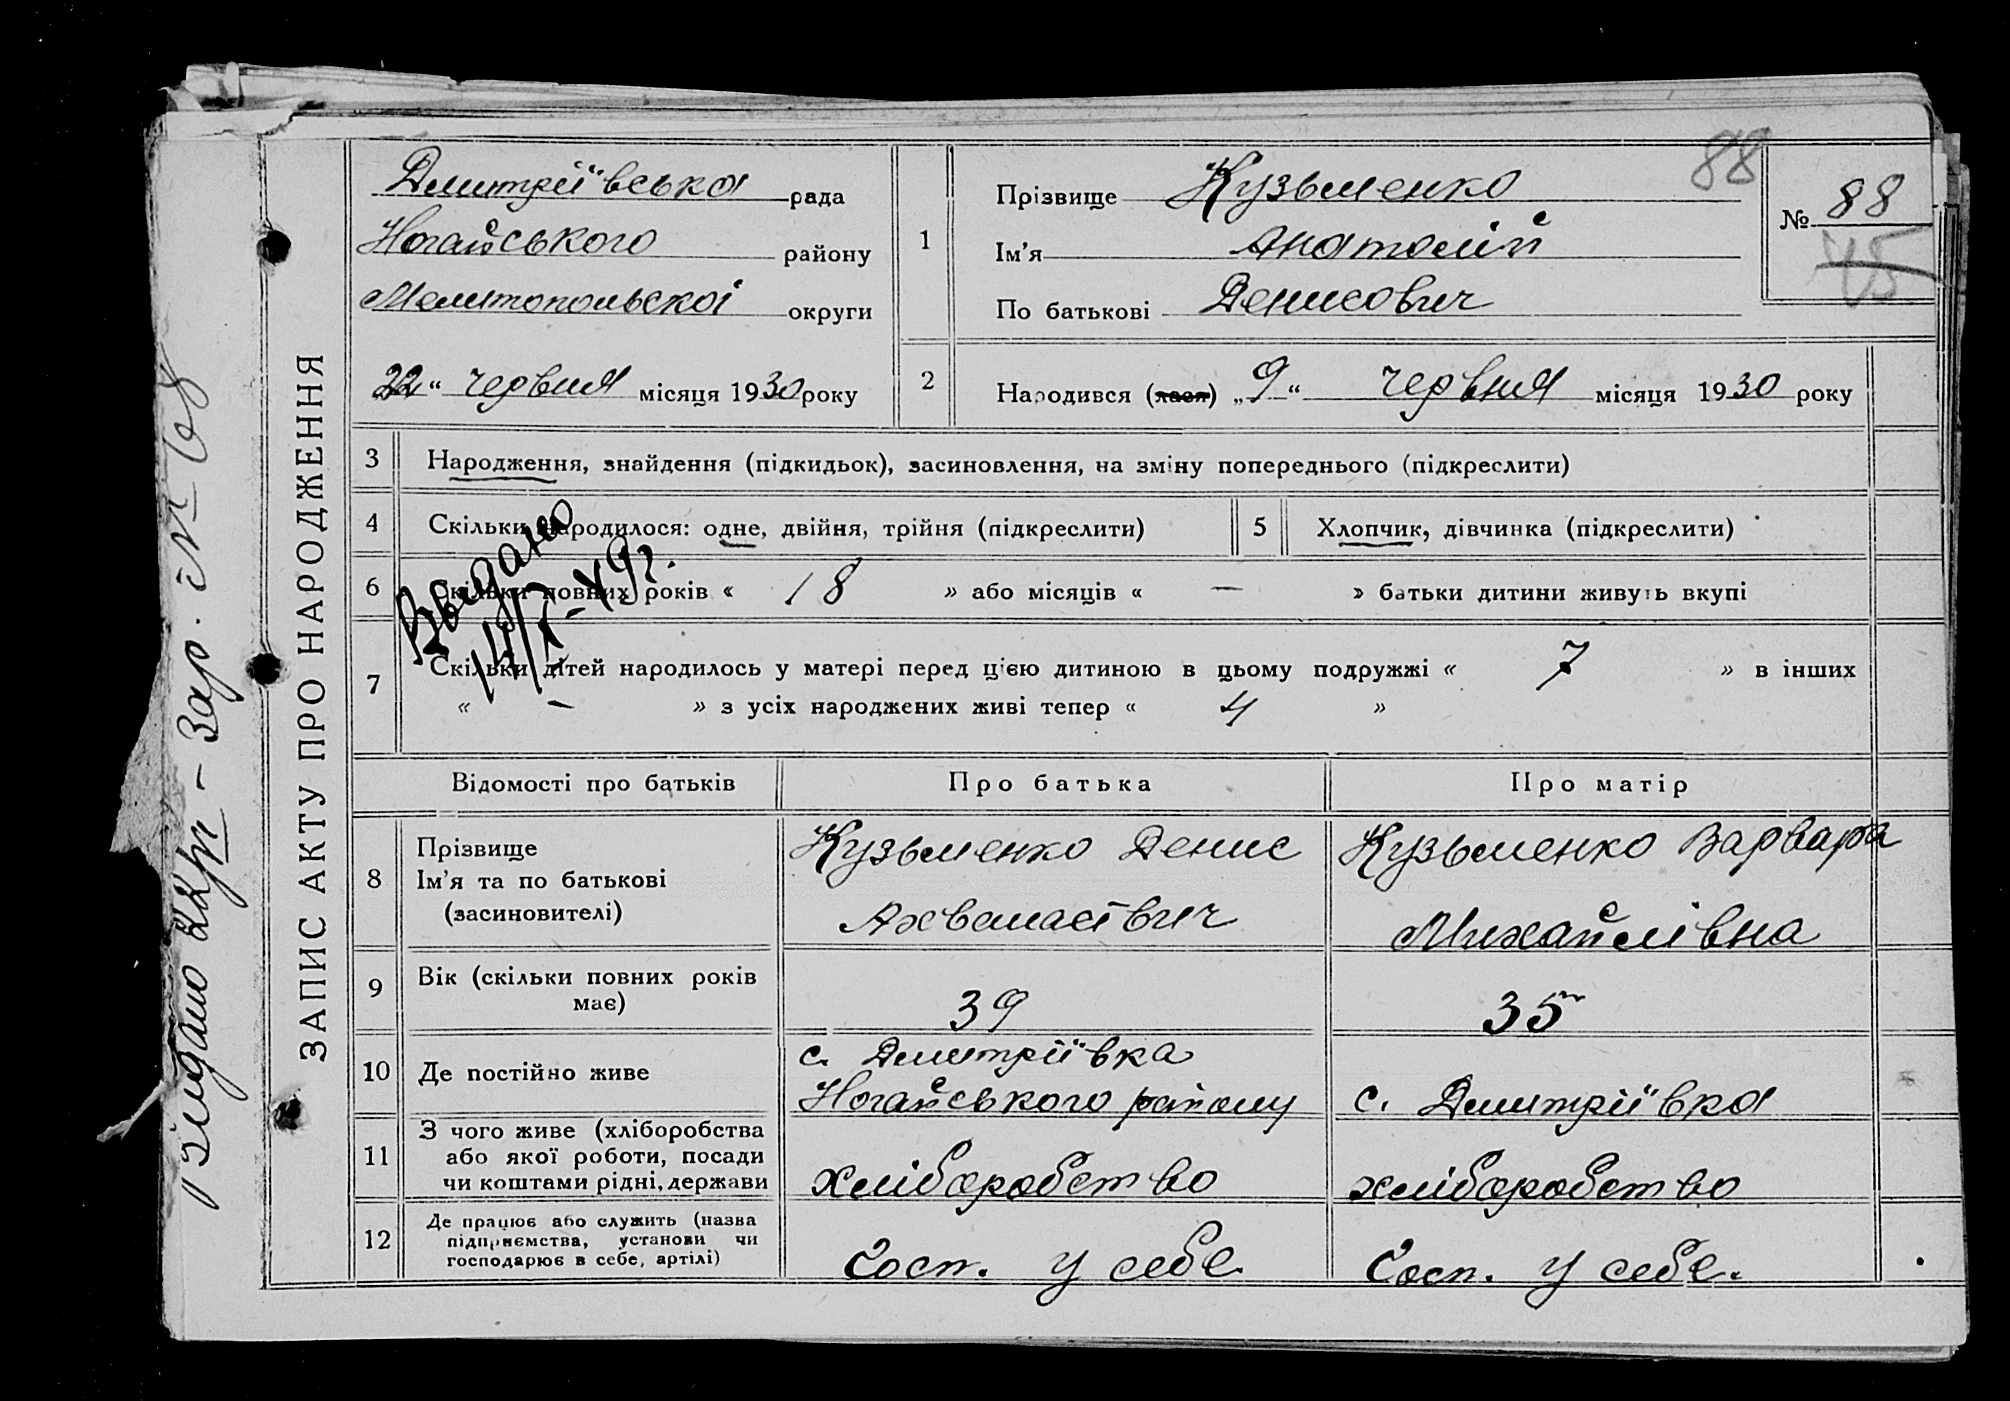 88
Дмитріївська рада
Ногайського району
Мелитопольскої округи
22 “ червня місяця 1930 року
1
Прізвище Кузьменко
Ім’я Анатолій
По батькові Денисович
№ 88
45
2
Народився (лася) „ 9 “ червня місяця 1930 року
ЗАПИС АКТУ ПРО НАРОДЖЕННЯ
3 Народження, знайдення (підкидьок), засиновлення, на зміну попереднього (підкреслити)
4 Скільки народилося: одне, двійня, трійня (підкреслити)
5 Хлопчик, дівчинка (підкреслити)
6 Скільки повних років « 18 » або місяців « — » батьки дитини живуть вкупі
Выдано
7 Скільки дітей народилось у матері перед цією дитиною в цьому подружжі « 7 » в інших
« – » з усіх народжених живі тепер « 4 »
Відомості про батьків
Про батька
Про матір
8 Прізвище
Ім’я та по батькові
(засиновителі)
Кузьменко Денис
Ахванасївич
Кузьменко Варвара
Михайлівна
9 Вік (скільки повних років
має)
39
35
10 Де постійно живе
с. Дмитріївка
Ногайського району
с. Дмитріївка
11 З чого живе (хліборобства
або якої роботи, посади
чи коштами рідні, держави
хліборобство
хліборобство
12 Де працює або служить (назва
підприємства, установи чи
господарює в себе, артілі)
Госп. у себе
Госп. у себе.